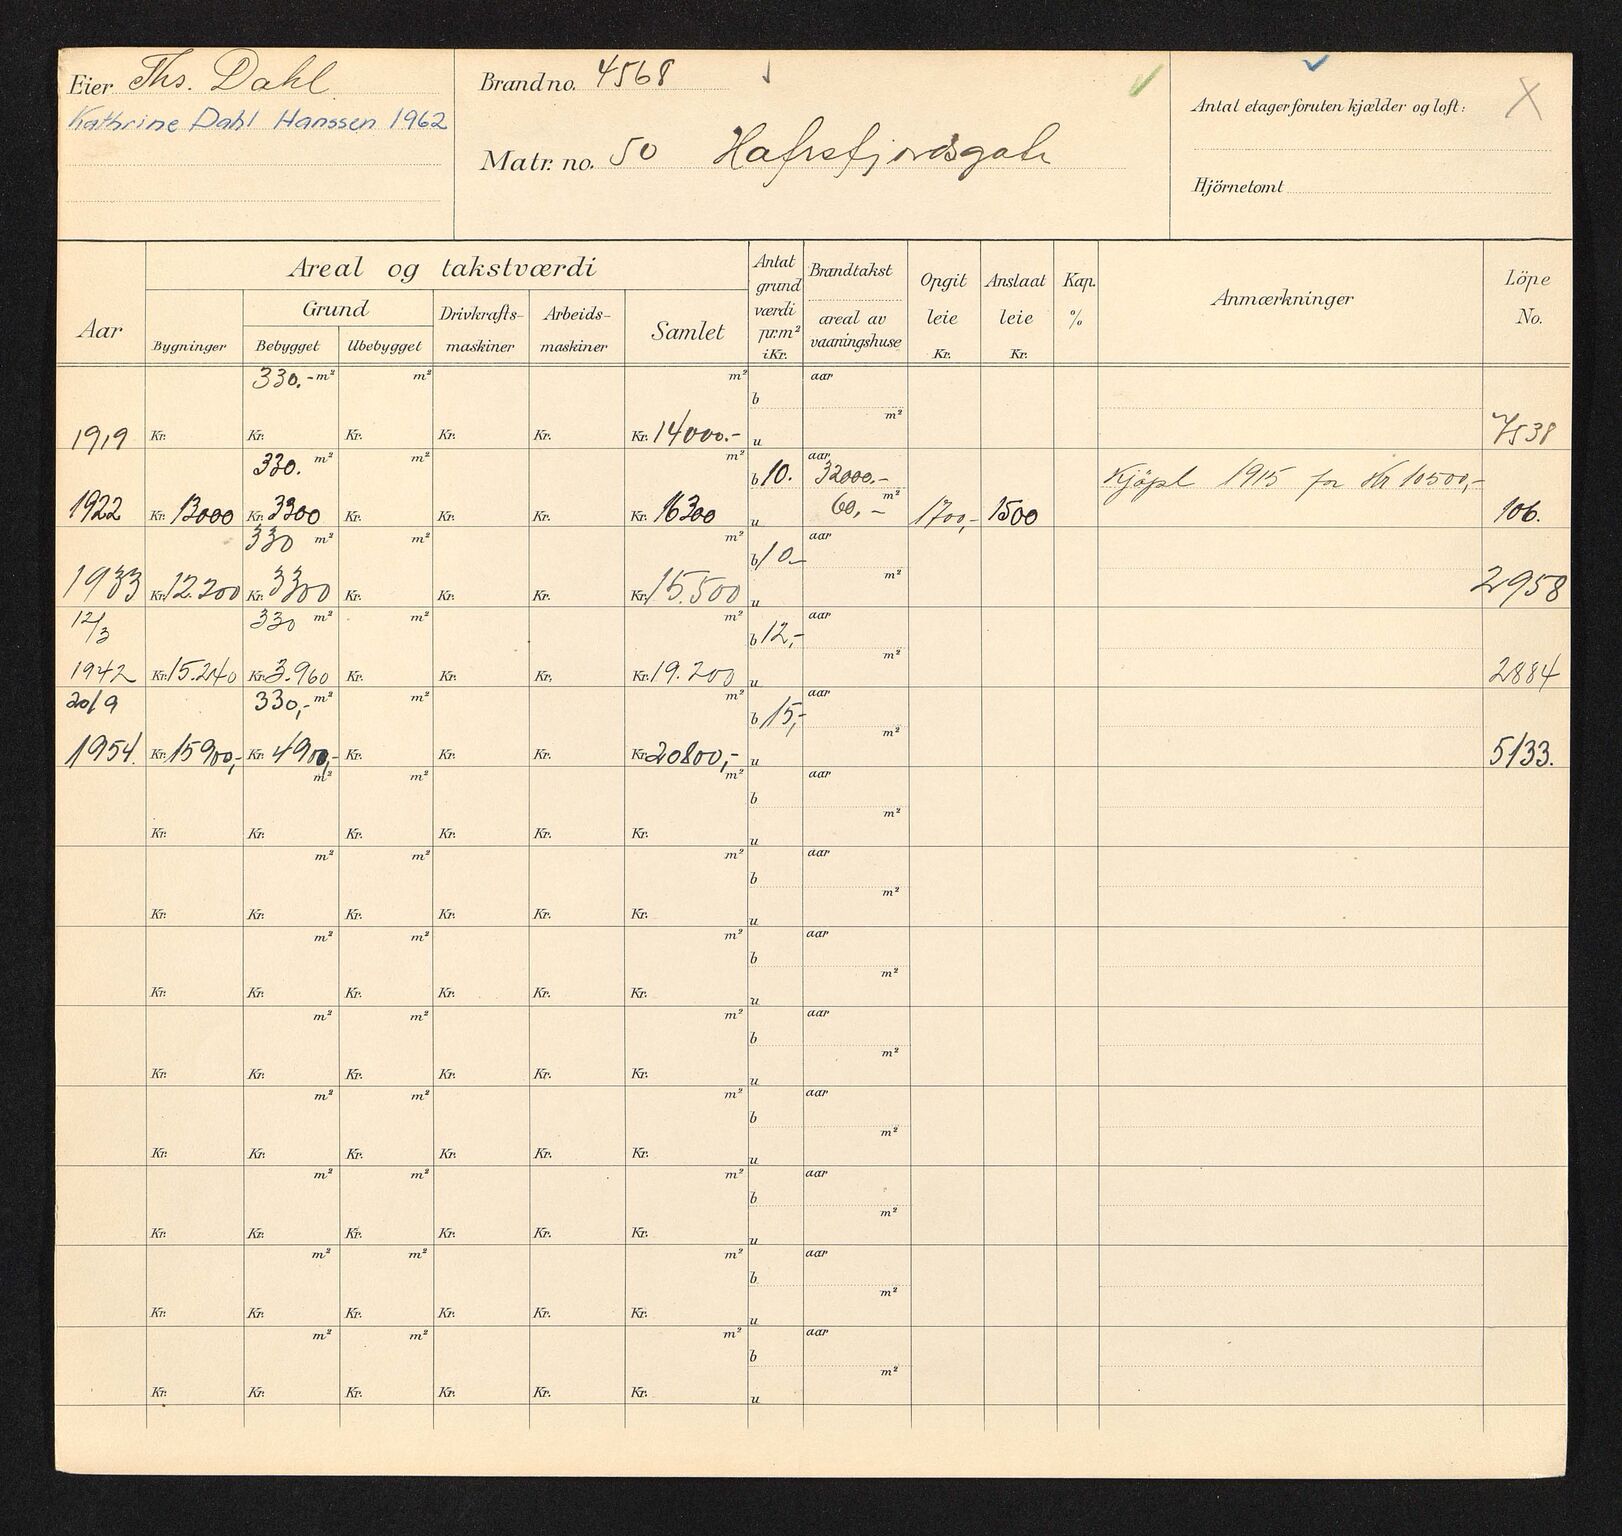 Eier Ths. Dahl
Kathrine Dahl Hanssen 1962
Brandno. 4568
Matr. no. 50 Hafrsfjordsgate
Antal etager foruten kjælder og loft: X
Hjörnetomt
Areal og takstværdi
Aar
Grund
Bygninger Bebygget Ubebygget
Drivkrafts-
maskiner
Arbeids-
maskiner
Samlet
Antat
grund
værdi
pr. m²
i Kr.
Brandtakst
areal av
vaaningshuse
Opgit
leie
Kr.
Anslaat
leie
Kr.
Kap.
%
Anmærkninger
Löpe
No.
330.- m² m² m² b aar m²
1919 Kr. Kr. Kr. Kr. Kr. Kr. 14000.- u 7538
330. m² m² m² b 10. aar 32000.- Kjöpt 1915 for Kr 10500,-
1922 Kr. 13000 Kr. 3300 Kr. Kr. Kr. Kr. 16300 u 60,- m² 1700,- 1500 106.
330 m² m² m² b 10- aar m²
1933 Kr. 12.200 Kr. 3300 Kr. Kr. Kr. Kr. 15.500 u 2958
12/3 330 m² m² m² b 12,- aar m²
1942 Kr. 15.240 Kr. 3.960 Kr. Kr. Kr. Kr. 19.200 u 2884
20/9 330,- m² m² m² b 15,- aar m²
1954. Kr. 15900,- Kr. 4900,- Kr. Kr. Kr. Kr. 20800,- u 5133.
m² m² m² b aar m²
Kr. Kr. Kr. Kr. Kr. Kr. u
m² m² m² b aar m²
Kr. Kr. Kr. Kr. Kr. Kr. u
m² m² m² b aar m²
Kr. Kr. Kr. Kr. Kr. Kr. u
m² m² m² b aar m²
Kr. Kr. Kr. Kr. Kr. Kr. u
m² m² m² b aar m²
Kr. Kr. Kr. Kr. Kr. Kr. u
m² m² m² b aar m²
Kr. Kr. Kr. Kr. Kr. Kr. u
m² m² m² b aar m²
Kr. Kr. Kr. Kr. Kr. Kr. u
m² m² m² b aar m²
Kr. Kr. Kr. Kr. Kr. Kr. u